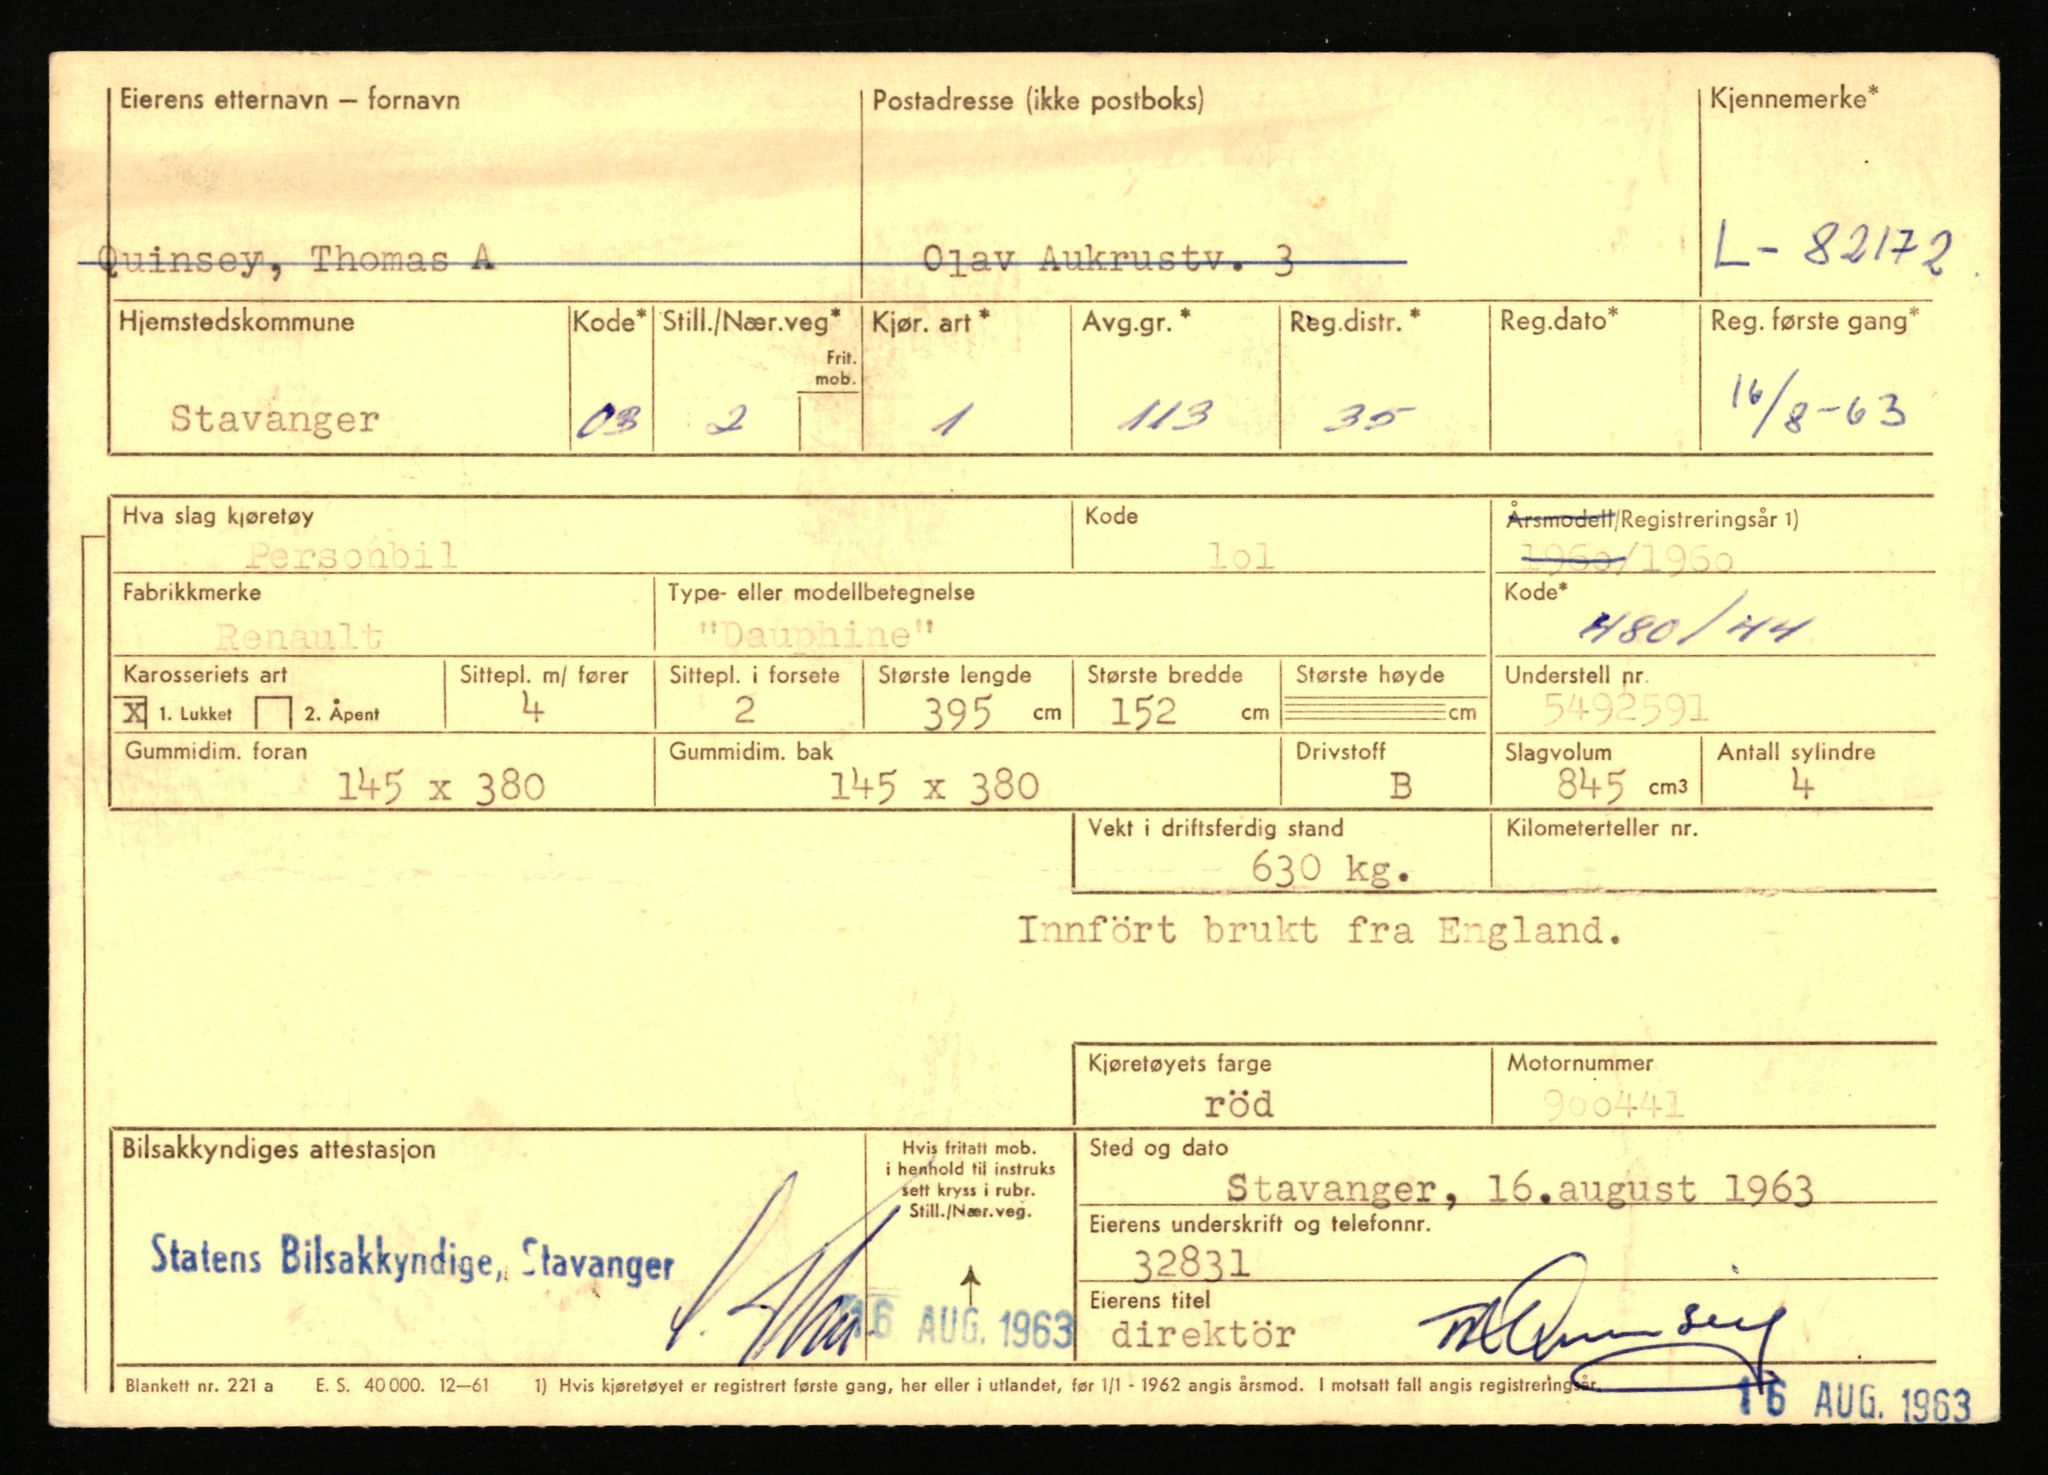 Eierens etternavn – fornavn Postadresse (ikke postboks) Kjennemerke*
Quinsey, Thomas A Olav Aukrustv. 3 L - 82172
Hjemstedskommune Kode* Still./Nær.veg* Kjør. art* Avg.gr.* Reg.distr.* Reg.dato* Reg. første gang*
Frit.
mob.
Stavanger 03 2 1 113 35 16/8-63
Hva slag kjøretøy Kode Årsmodell/Registreringsår 1)
Personbil lol 196o/196o
Fabrikkmerke Type- eller modellbetegnelse Kode*
Renault "Dauphine" 480/44
Karosseriets art Sittepl. m/ fører Sittepl. i forsete Største lengde Største bredde Største høyde Understell nr.
X 1. Lukket 2. Åpent 4 2 395 cm 152 cm cm 5492591
Gummidim. foran Gummidim. bak Drivstoff Slagvolum Antall sylindre
145 x 380 145 x 380 B 845 cm3 4
Vekt i driftsferdig stand Kilometerteller nr.
630 kg.
Innfört brukt fra England.
Kjøretøyets farge Motornummer
röd 9oo441
Bilsakkyndiges attestasjon Hvis fritatt mob.
i henhold til instruks
sett kryss i rubr.
Still./Nær.veg.
Sted og dato
Stavanger, 16.august 1963
Eierens underskrift og telefonnr.
Statens Bilsakkyndige, Stavanger 32831
16 AUG. 1963
Eierens titel
direktör
Blankett nr. 221 a E. S. 40 000. 12–61 1) Hvis kjøretøyet er registrert første gang, her eller i utlandet, før 1/1 - 1962 angis årsmod. I motsatt fall angis registreringsår.
16 AUG. 1963